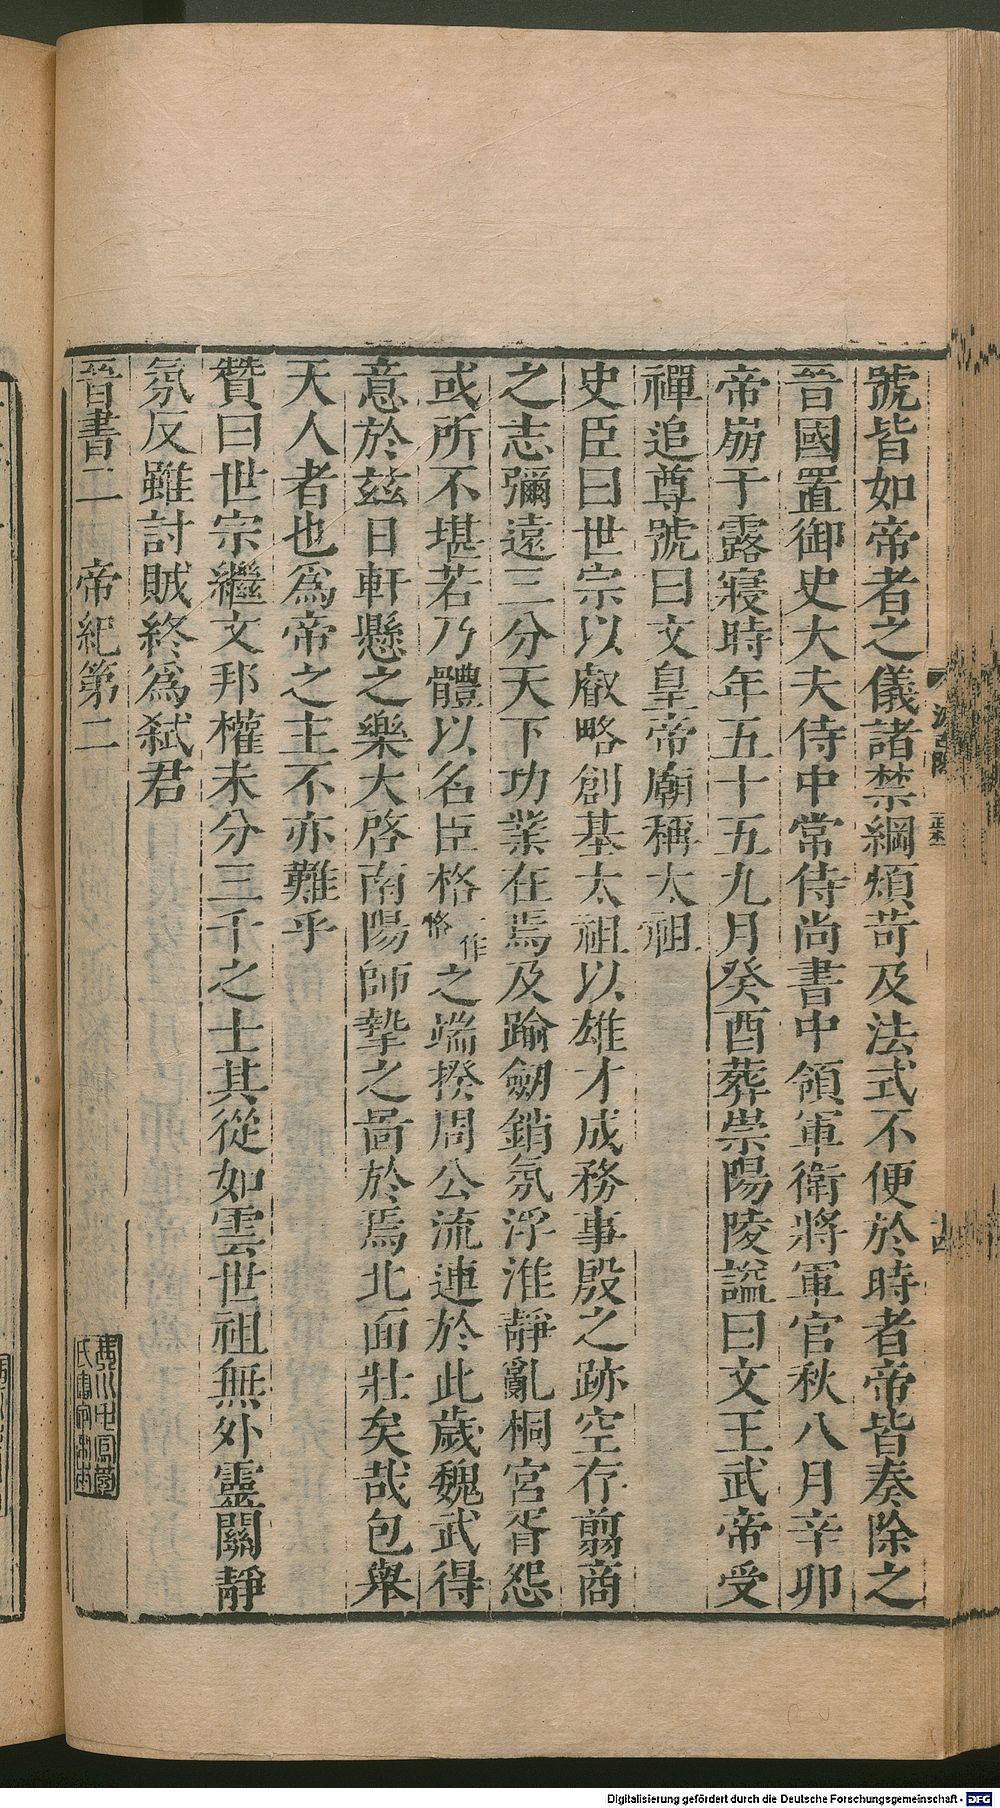 號皆如帝者之儀諸禁綱煩苛及法式不便於時者帝皆奏除之
晉國置御史大夫侍中常侍尚書中領軍衛將軍官秋八月辛卯
帝崩于露寢時年五十五九月癸酉葬崇陽陵謚曰文王武帝受
禪追尊號曰文皇帝廟稱太祖
史臣曰世宗以叡略創基太祖以雄才成務事殷之跡空存翦商
之志彌遠三分天下功業在焉及踰劒銷氛浮淮靜亂桐宮胥怨
或所不堪若乃體以名臣格一作恪之端揆周公流連於此歲魏武得
意於茲日軒懸之樂大啓南陽師摯之啚於焉北面壯矣哉包舉
天人者也爲帝之主不亦難乎
贊曰世宗繼文邦權未分三千之士其從如雲世祖無外靈關靜
氛反雖討賊終爲弑君
晉書二 帝紀第二
Digitalisierung gefördert durch die Deutsche Forschungsgemeinschaft - DFG